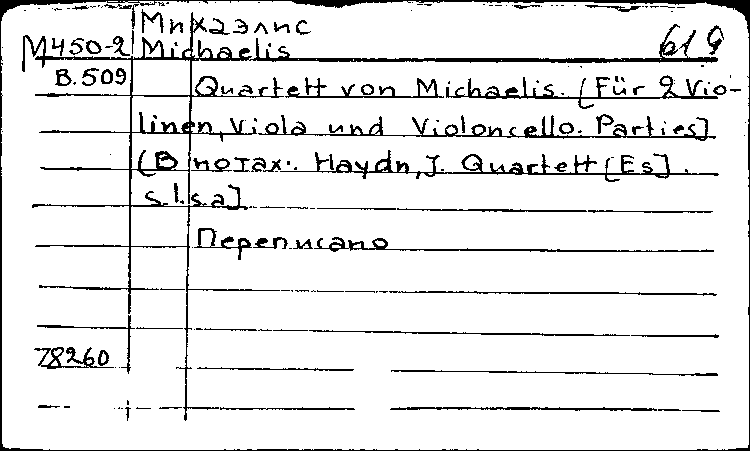 Михаэлис
М450-2 Michaelis 619
B.509
Quartett von Michaelis. [Für 2 Vio-
linen, Viola und Violoncello. Parties]
(В нотах: Haydn, J. Quartett [Es].
s.l.s.a].
Переписано
78260